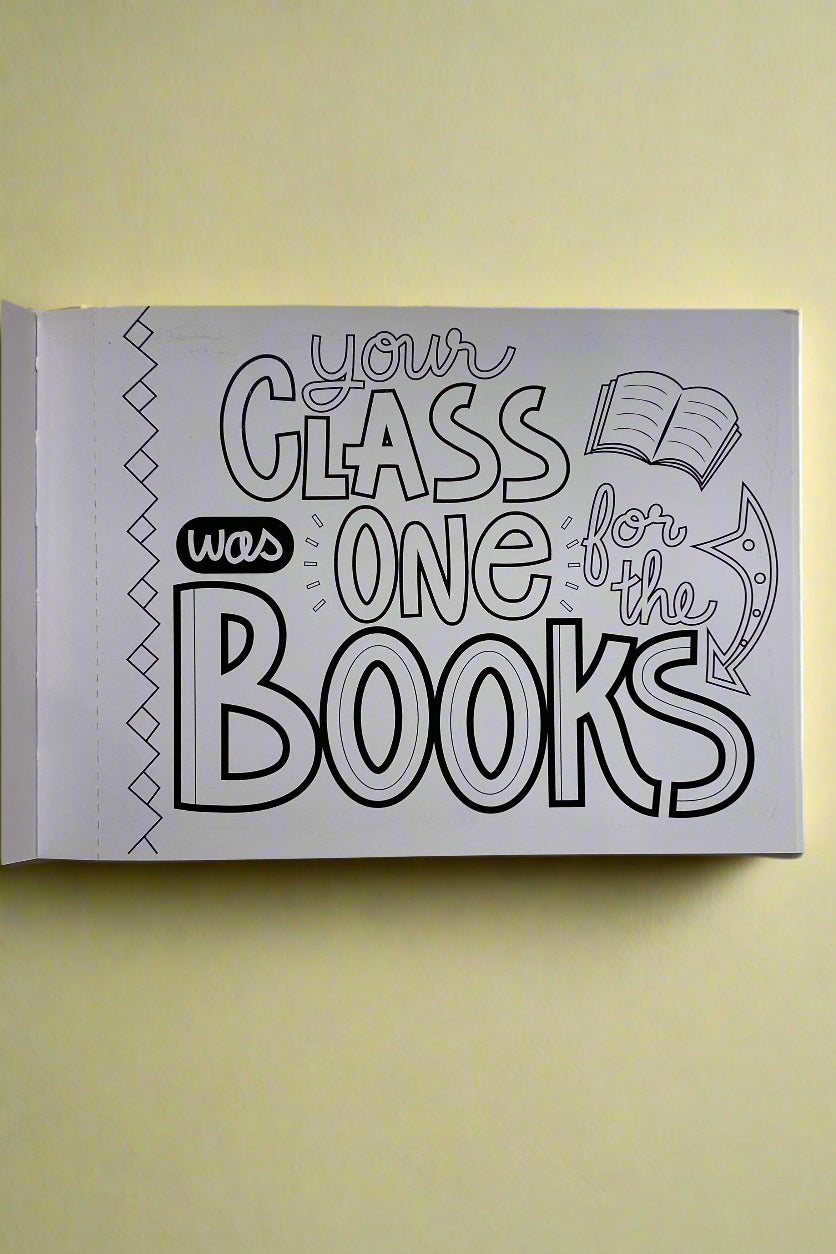 your
CLASS
was ONE for
the
BOOKS